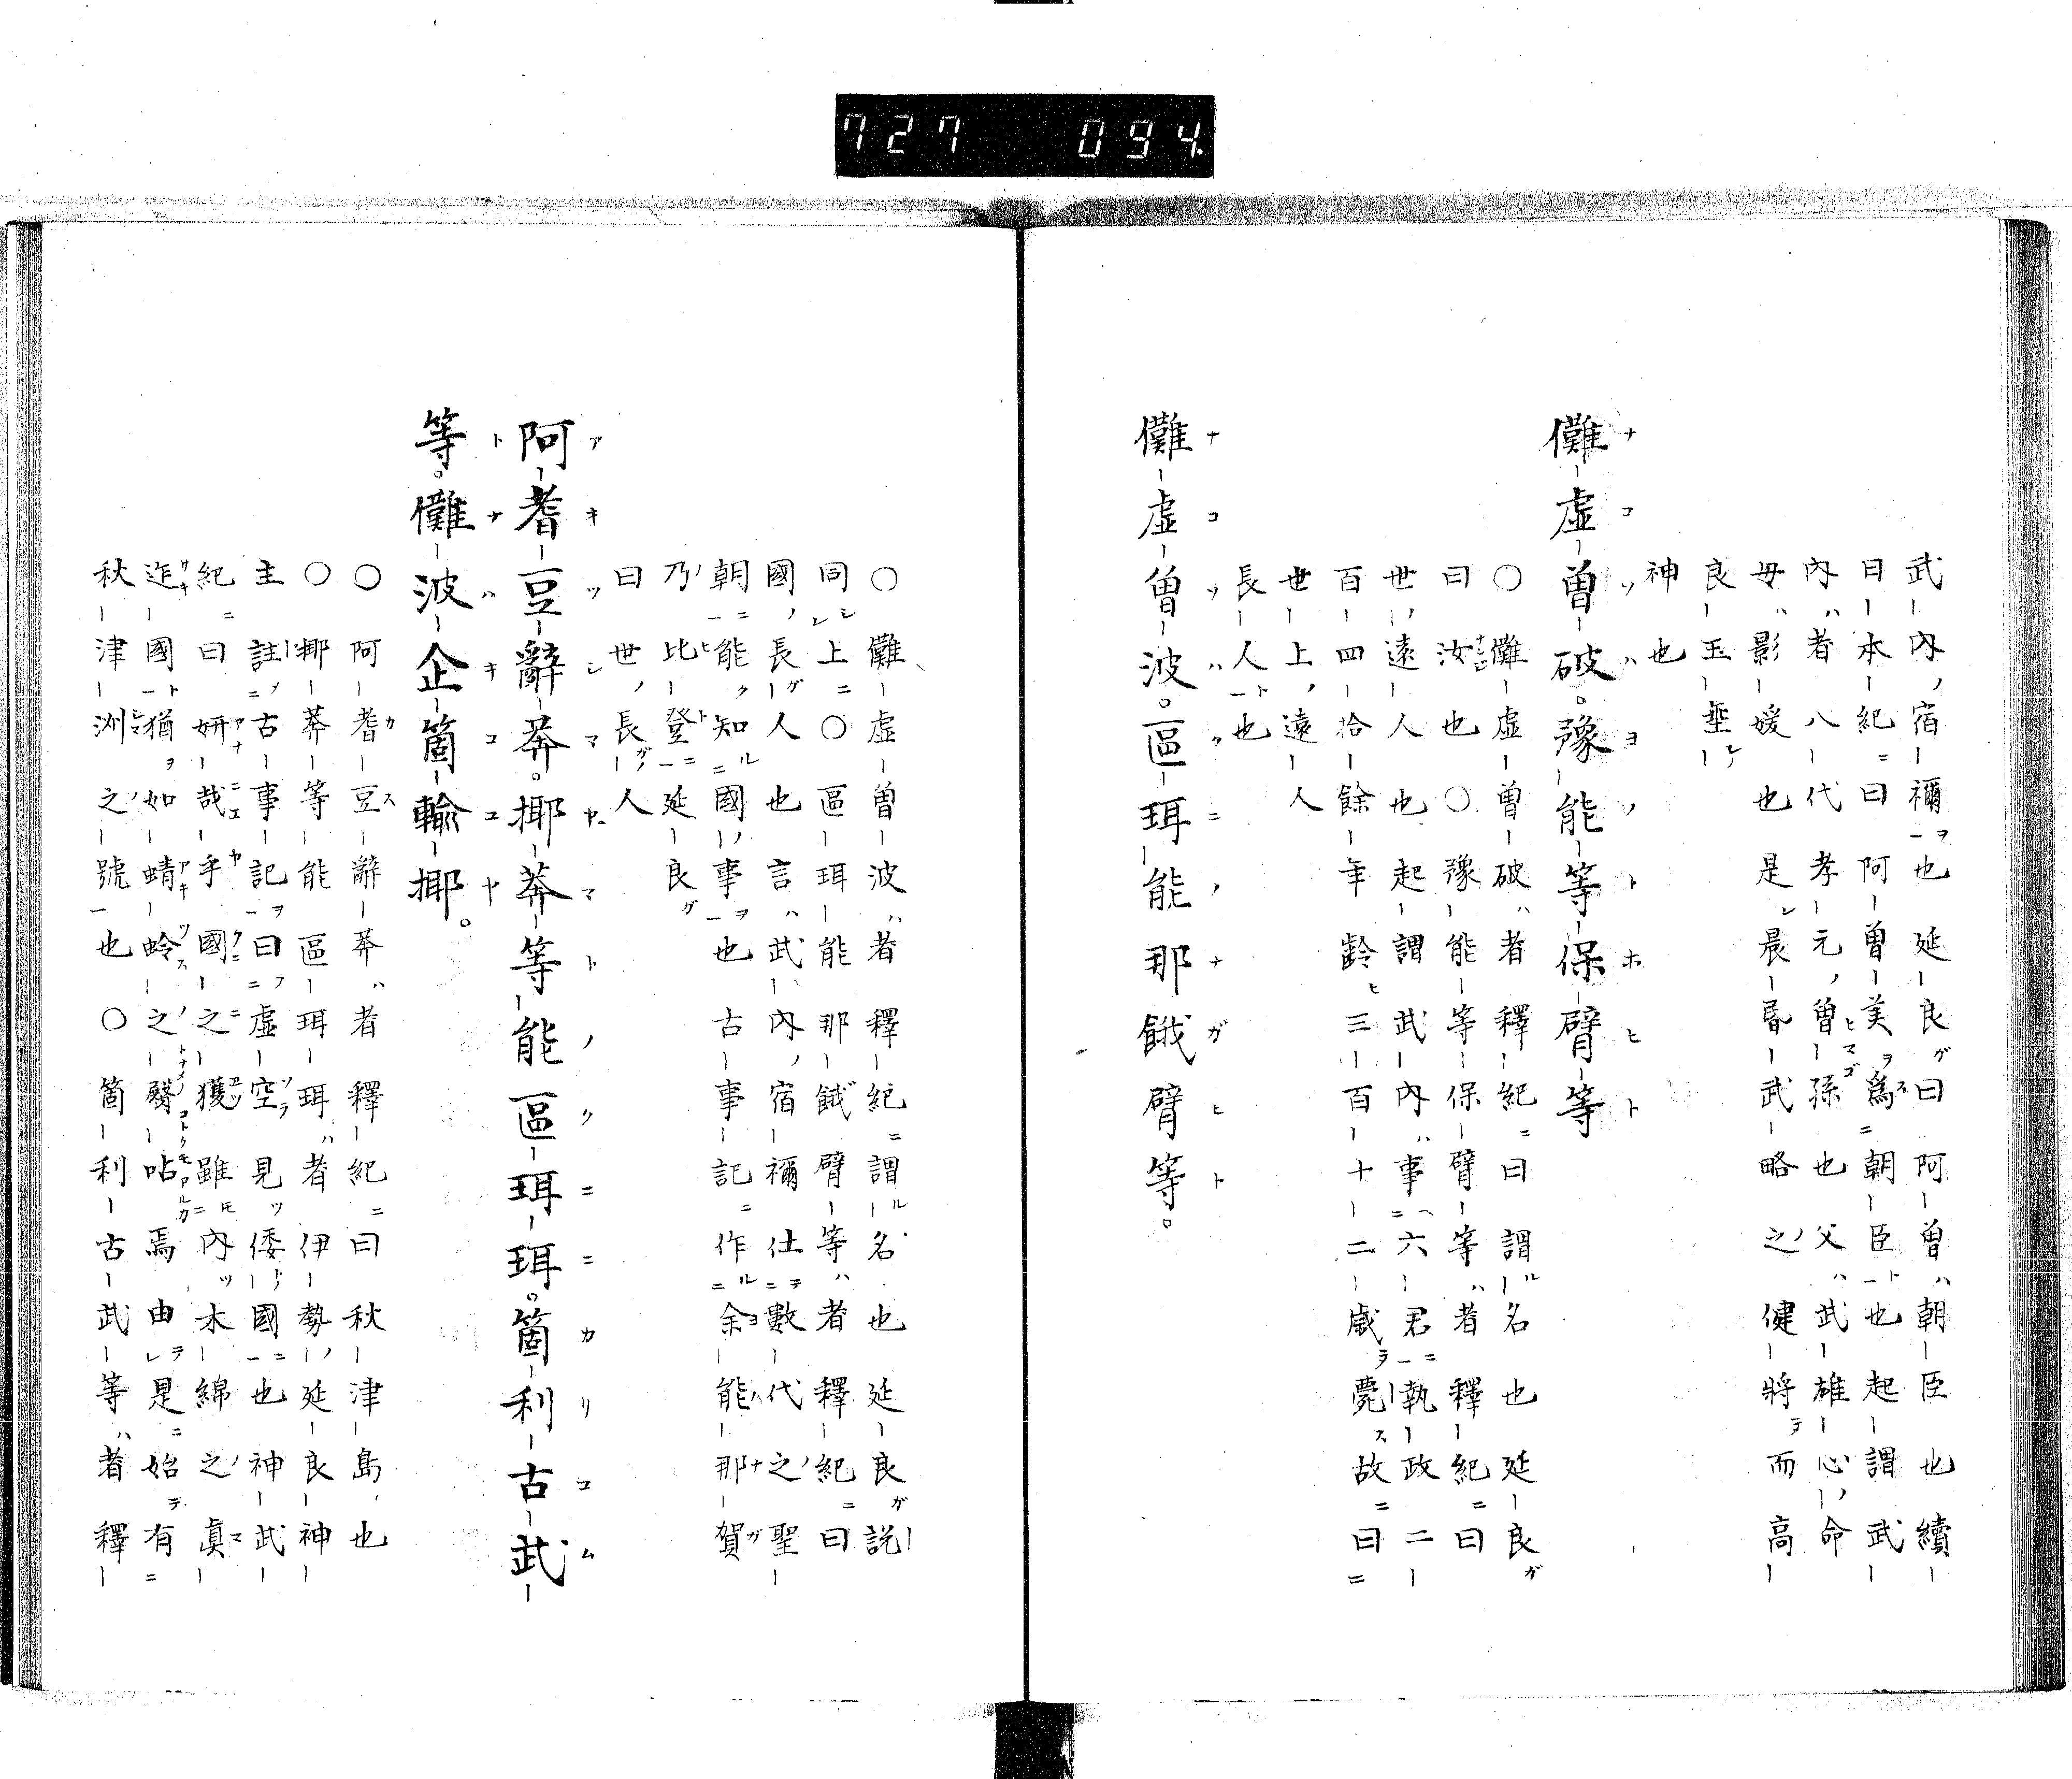 727 094.
武-內ノ宿-禰ヲ也延-良ガ曰阿-曽ハ朝-臣也續-
日-本-紀ニ曰阿-曽-美ヲ為ス朝-臣ト也起-謂武-
內ハ者八-代孝-元ノ曽-孫也父ハ武-雄-心ノ命
母ハ影-媛也是レ晨-昏-武-略之健-將ヲ而高-
良-玉-垂レノ
神也
儺-虛-曽-破。豫-能-等-保-臂-等
○儺-虛-曽-破ハ者釋-紀ニ曰謂ル名也延-良ガ
曰汝也○豫-能-等-保-臂-等ハ者釋-紀ニ曰
世ノ遠-人也起-謂武-內ハ事ヘ六-君ニ執-政二-
百-四-拾-餘-年齡ヒ三-百-十-二-歲ヲ薨ス故ニ曰
世-上ノ遠-人
長-人ト也
儺-虛-曽-波。區-珥-能那餓臂等。
○儺-虛-曽-波ハ者釋-紀ニ謂ル名也延-良ガ説
同シ上ニ○區-珥-能那-餓臂-等ハ者釋-紀ニ曰
國ノ長ガ人也言ハ武-內ノ宿-禰仕ヲ數-代之聖-
朝ニ能ク知ル國ノ事ヲ也古-事-記ニ作ル余-能-那-賀
乃比-登ニ延-良ガ
曰世ノ長ガ-人
阿-耆-豆-辭-莽。揶-莽-等-能區-珥-珥。箇-利-古-武-
等。儺-波-企-箇-輸-揶。
○阿-耆-豆-辭-莽ハ者釋-紀ニ曰秋-津-島也
○揶-莽-等-能區-珥-珥ハ者伊-勢ノ延-良-神-
主註ニ古-事-記ヲ曰フ虛-空見ツ倭ト國ニ也神-武-
紀ニ曰妍-哉-乎國-之-獲雖モ內ツ木-綿之眞-
迮-國ト猶ヲ如-蜻-蛉-之-臀-呫焉由テ是ニ始テ有
秋-津-洲之-號也○箇-利-古-武-等ハ者釋-